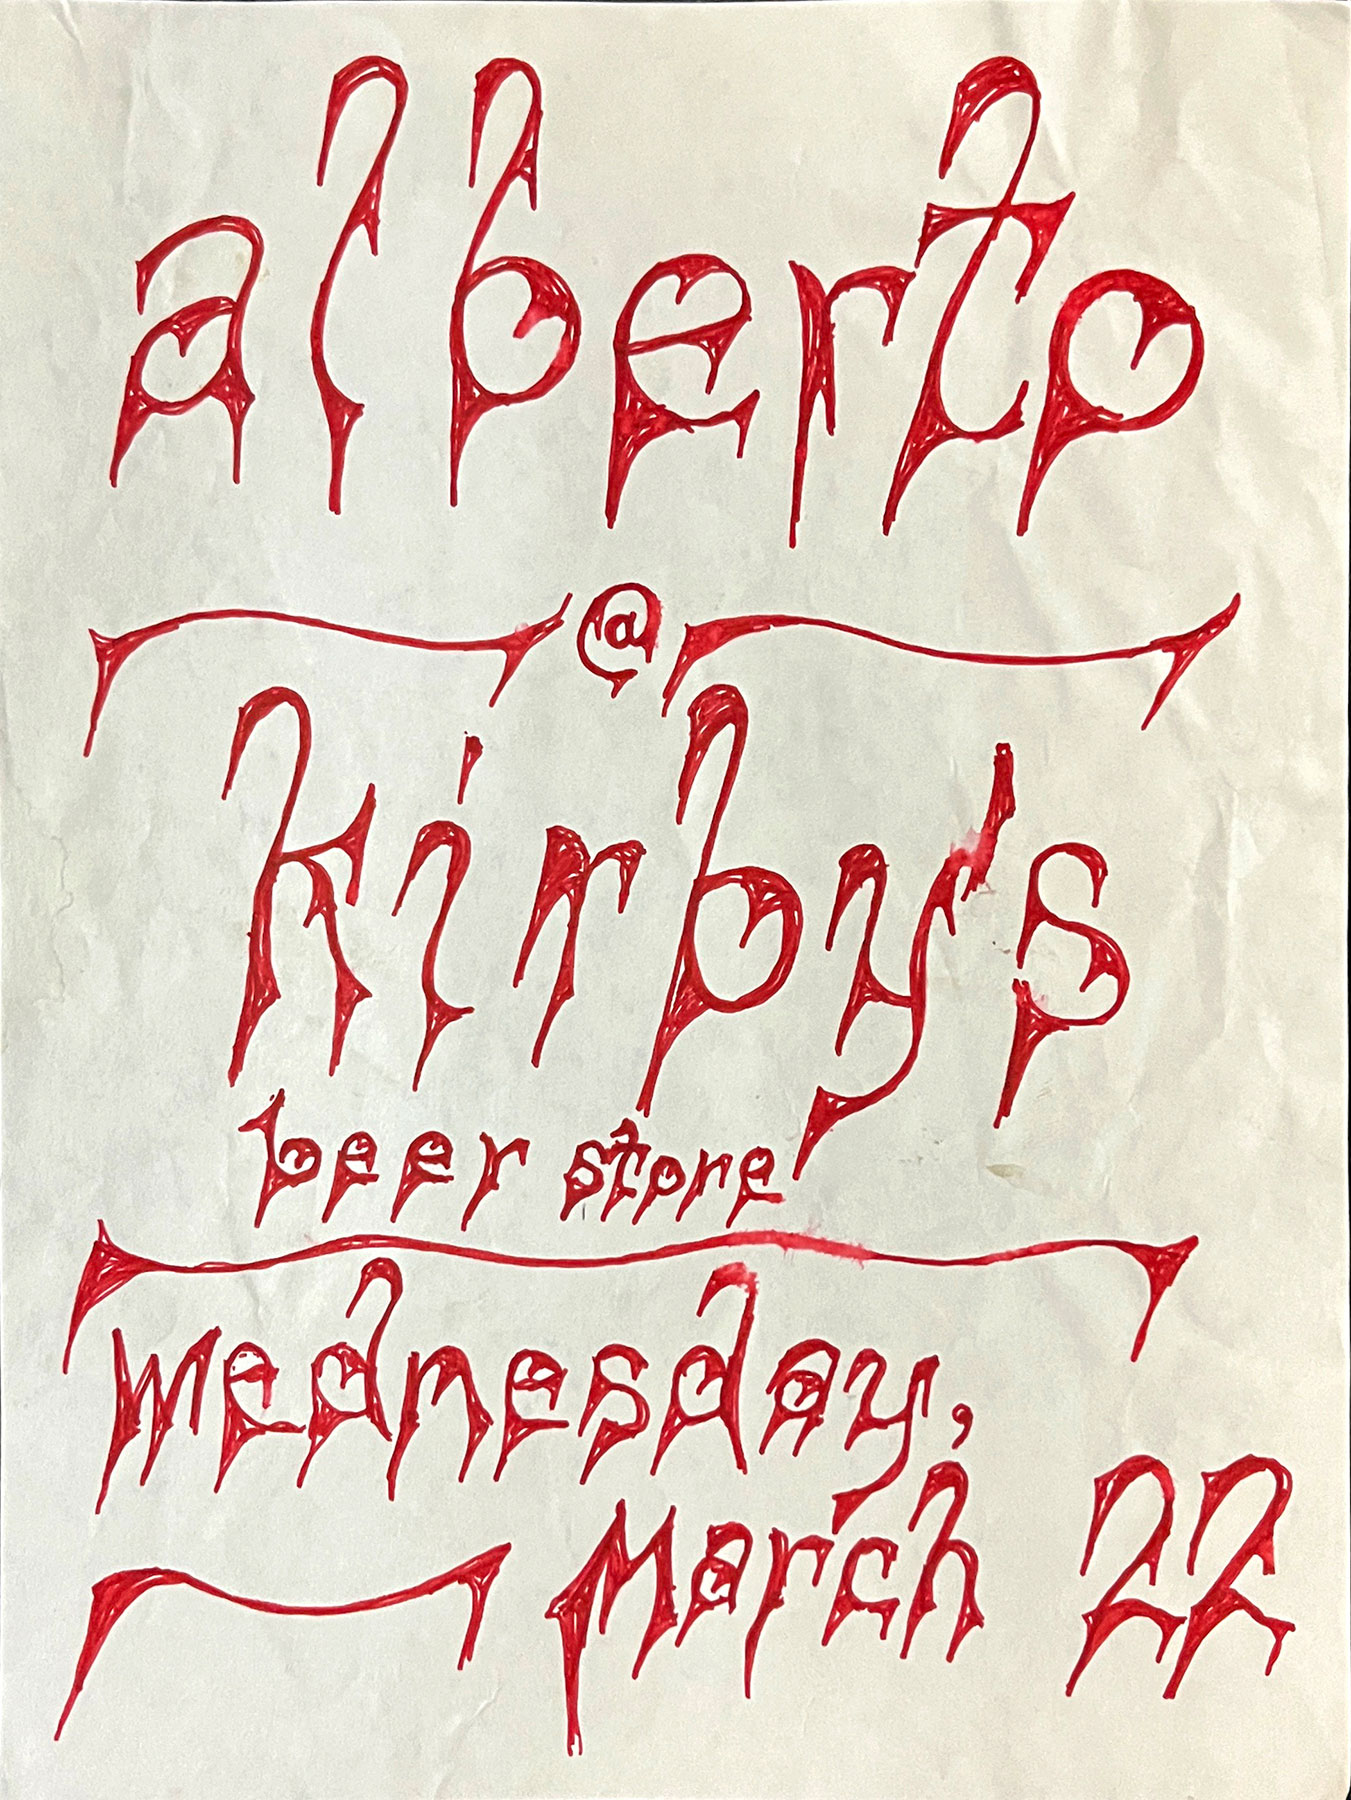 alberto
@
kirby's
beer store
wednesday,
March 22